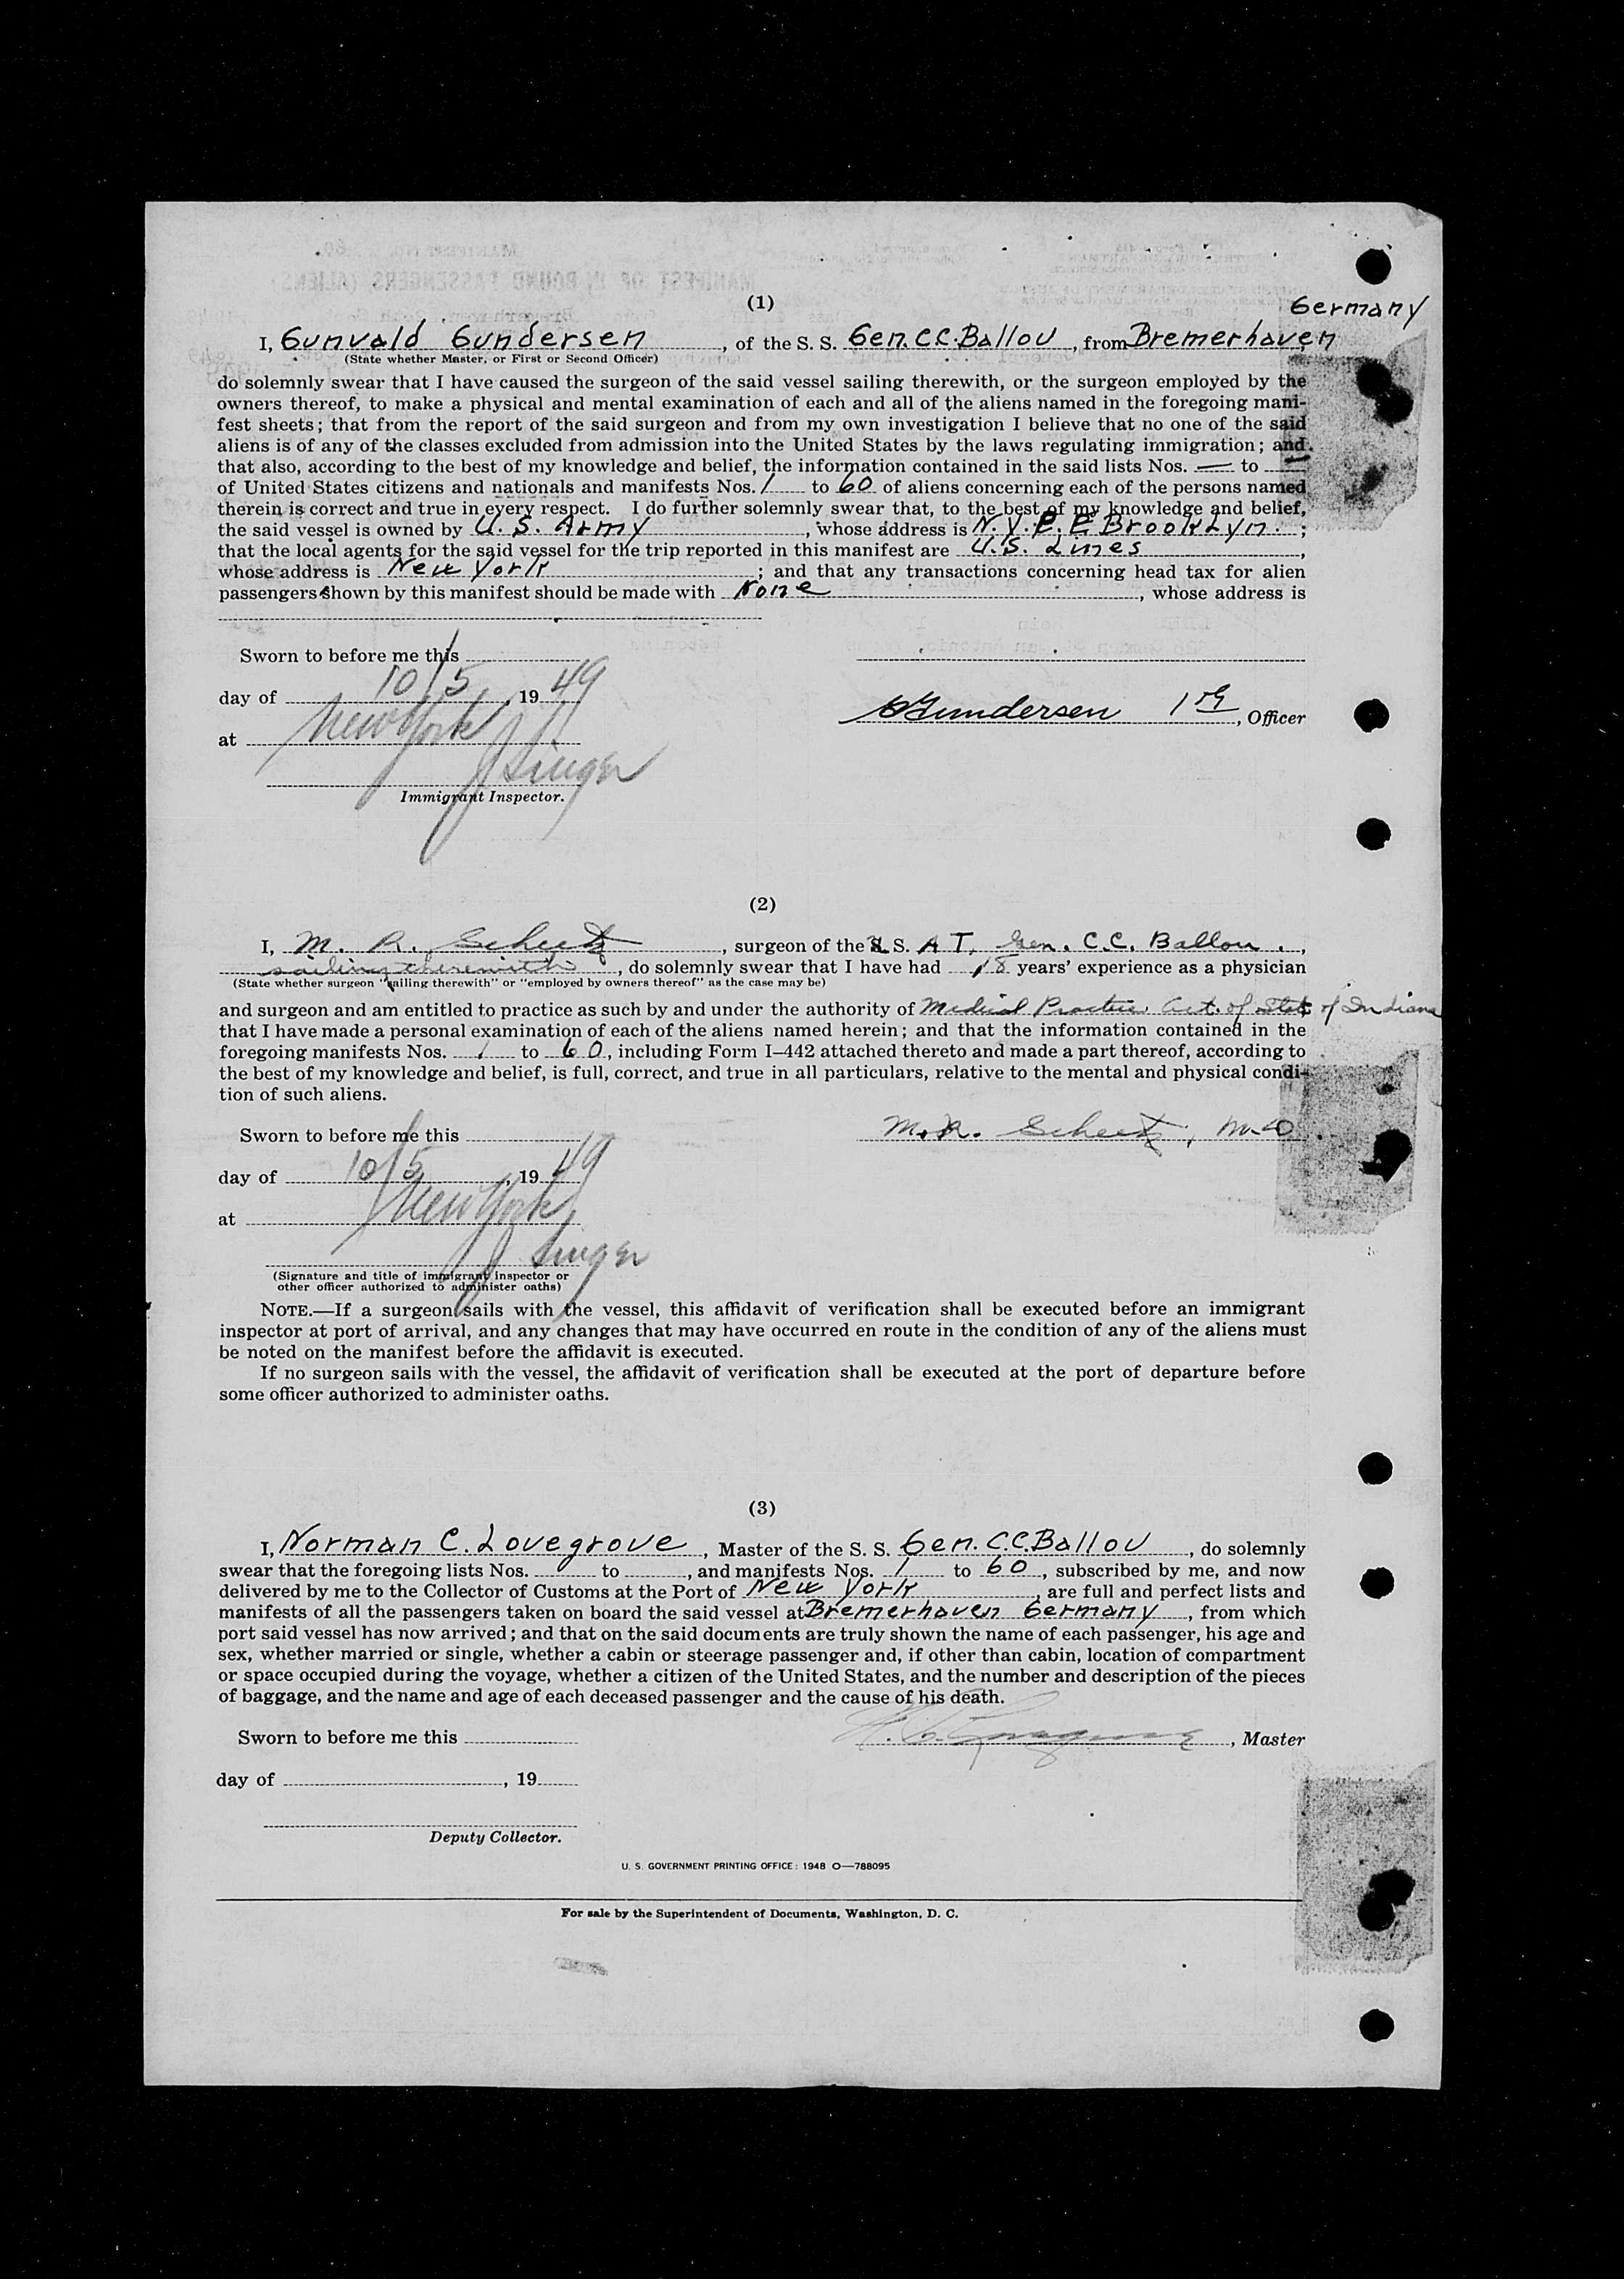 (1)
Germany
I, Gunvald Gundersen, of the S. S. Gen. C.C. Ballou, from Bremerhaven,
(State whether Master, or First or Second Officer)
do solemnly swear that I have caused the surgeon of the said vessel sailing therewith, or the surgeon employed by the
owners thereof, to make a physical and mental examination of each and all of the aliens named in the foregoing mani-
fest sheets; that from the report of the said surgeon and from my own investigation I believe that no one of the said
aliens is of any of the classes excluded from admission into the United States by the laws regulating immigration; and
that also, according to the best of my knowledge and belief, the information contained in the said lists Nos. — to —
of United States citizens and nationals and manifests Nos. 1 to 60 of aliens concerning each of the persons named
therein is correct and true in every respect. I do further solemnly swear that, to the best of my knowledge and belief,
the said vessel is owned by U. S. Army, whose address is N. Y. P. E Brooklyn. ;
that the local agents for the said vessel for the trip reported in this manifest are U.S. Lines,
whose address is New York; and that any transactions concerning head tax for alien
passengers shown by this manifest should be made with None, whose address is
Sworn to before me this
day of 10/5, 19 49
Gundersen 1st, Officer
at New York
J Singer
Immigrant Inspector.
(2)
I, M. R. Scheetz, surgeon of the S. A T. Gen. C.C. Ballou.,
sailing therewith, do solemnly swear that I have had 18 years' experience as a physician
(State whether surgeon "sailing therewith" or "employed by owners thereof" as the case may be)
and surgeon and am entitled to practice as such by and under the authority of Medical Practice Act. of State of Indiana
that I have made a personal examination of each of the aliens named herein; and that the information contained in the
foregoing manifests Nos. 1 to 60, including Form I–442 attached thereto and made a part thereof, according to
the best of my knowledge and belief, is full, correct, and true in all particulars, relative to the mental and physical condi-
tion of such aliens.
Sworn to before me this
M. R. Scheetz, M.D.
day of 10/5, 19 49
at New York
J Singer
(Signature and title of immigrant inspector or
other officer authorized to administer oaths)
NOTE.—If a surgeon sails with the vessel, this affidavit of verification shall be executed before an immigrant
inspector at port of arrival, and any changes that may have occurred en route in the condition of any of the aliens must
be noted on the manifest before the affidavit is executed.
If no surgeon sails with the vessel, the affidavit of verification shall be executed at the port of departure before
some officer authorized to administer oaths.
(3)
I, Norman C. Lovegrove, Master of the S. S. Gen. C.C. Ballou, do solemnly
swear that the foregoing lists Nos. to, and manifests Nos. 1 to 60, subscribed by me, and now
delivered by me to the Collector of Customs at the Port of New York, are full and perfect lists and
manifests of all the passengers taken on board the said vessel at Bremerhaven Germany, from which
port said vessel has now arrived; and that on the said documents are truly shown the name of each passenger, his age and
sex, whether married or single, whether a cabin or steerage passenger and, if other than cabin, location of compartment
or space occupied during the voyage, whether a citizen of the United States, and the number and description of the pieces
of baggage, and the name and age of each deceased passenger and the cause of his death.
Sworn to before me this
N. C. Lovegrove, Master
day of , 19
Deputy Collector.
U. S. GOVERNMENT PRINTING OFFICE: 1948 O—788095
For sale by the Superintendent of Documents, Washington, D. C.